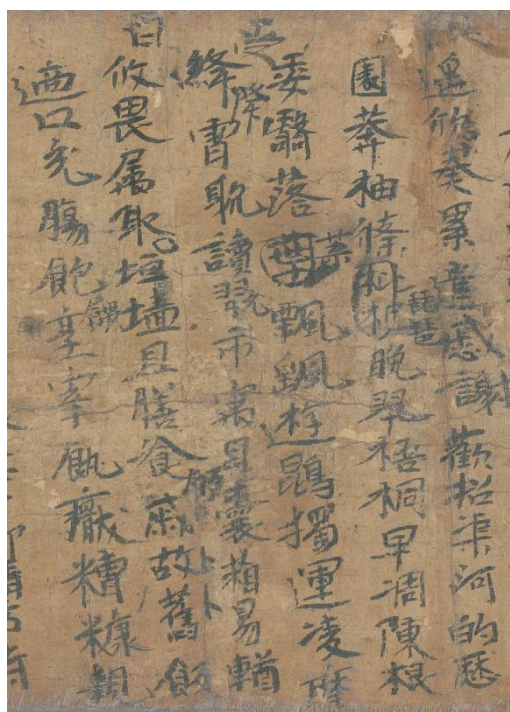 遥欣奏累遣慼謝歡招渠河的歷
園莽柚條枇杷晚翠梧桐早凋陳根
琵琶
委翳落葉飄飖遊鵾獨運凌摩
葉
絳霄耽讀翫市寓目囊箱易輶
攸畏属耳垣墻具膳飡戚故舊
適口充膓飽享宰飢厭糟糠親